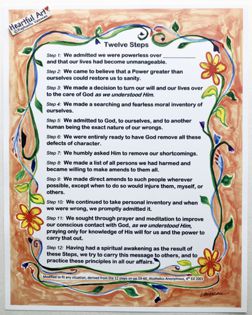 Heartful Art
Twelve Steps
Step 1: We admitted we were powerless over
and that our lives had become unmanageable.
Step 2: We came to believe that a Power greater than
ourselves could restore us to sanity.
Step 3: We made a decision to turn our will and our lives over
to the care of God as we understood Him.
Step 4: We made a searching and fearless moral inventory of
ourselves.
Step 5: We admitted to God, to ourselves, and to another
human being the exact nature of our wrongs.
Step 6: We were entirely ready to have God remove all these
defects of character.
Step 7: We humbly asked Him to remove our shortcomings.
Step 8: We made a list of all persons we had harmed and
became willing to make amends to them all.
Step 9: We made direct amends to such people wherever
possible, except when to do so would injure them, myself, or
others.
Step 10: We continued to take personal inventory and when
we were wrong, we promptly admitted it.
Step 11: We sought through prayer and meditation to improve
our conscious contact with God, as we understood Him,
praying only for knowledge of His will for us and the power to
carry that out.
Step 12: Having had a spiritual awakening as the result of
these Steps, we try to carry this message to others, and to
practice these principles in all our affairs.
Modified to fit any situation, derived from the 12 steps on pp 59-60, Alcoholics Anonymous, 4th Ed 2001